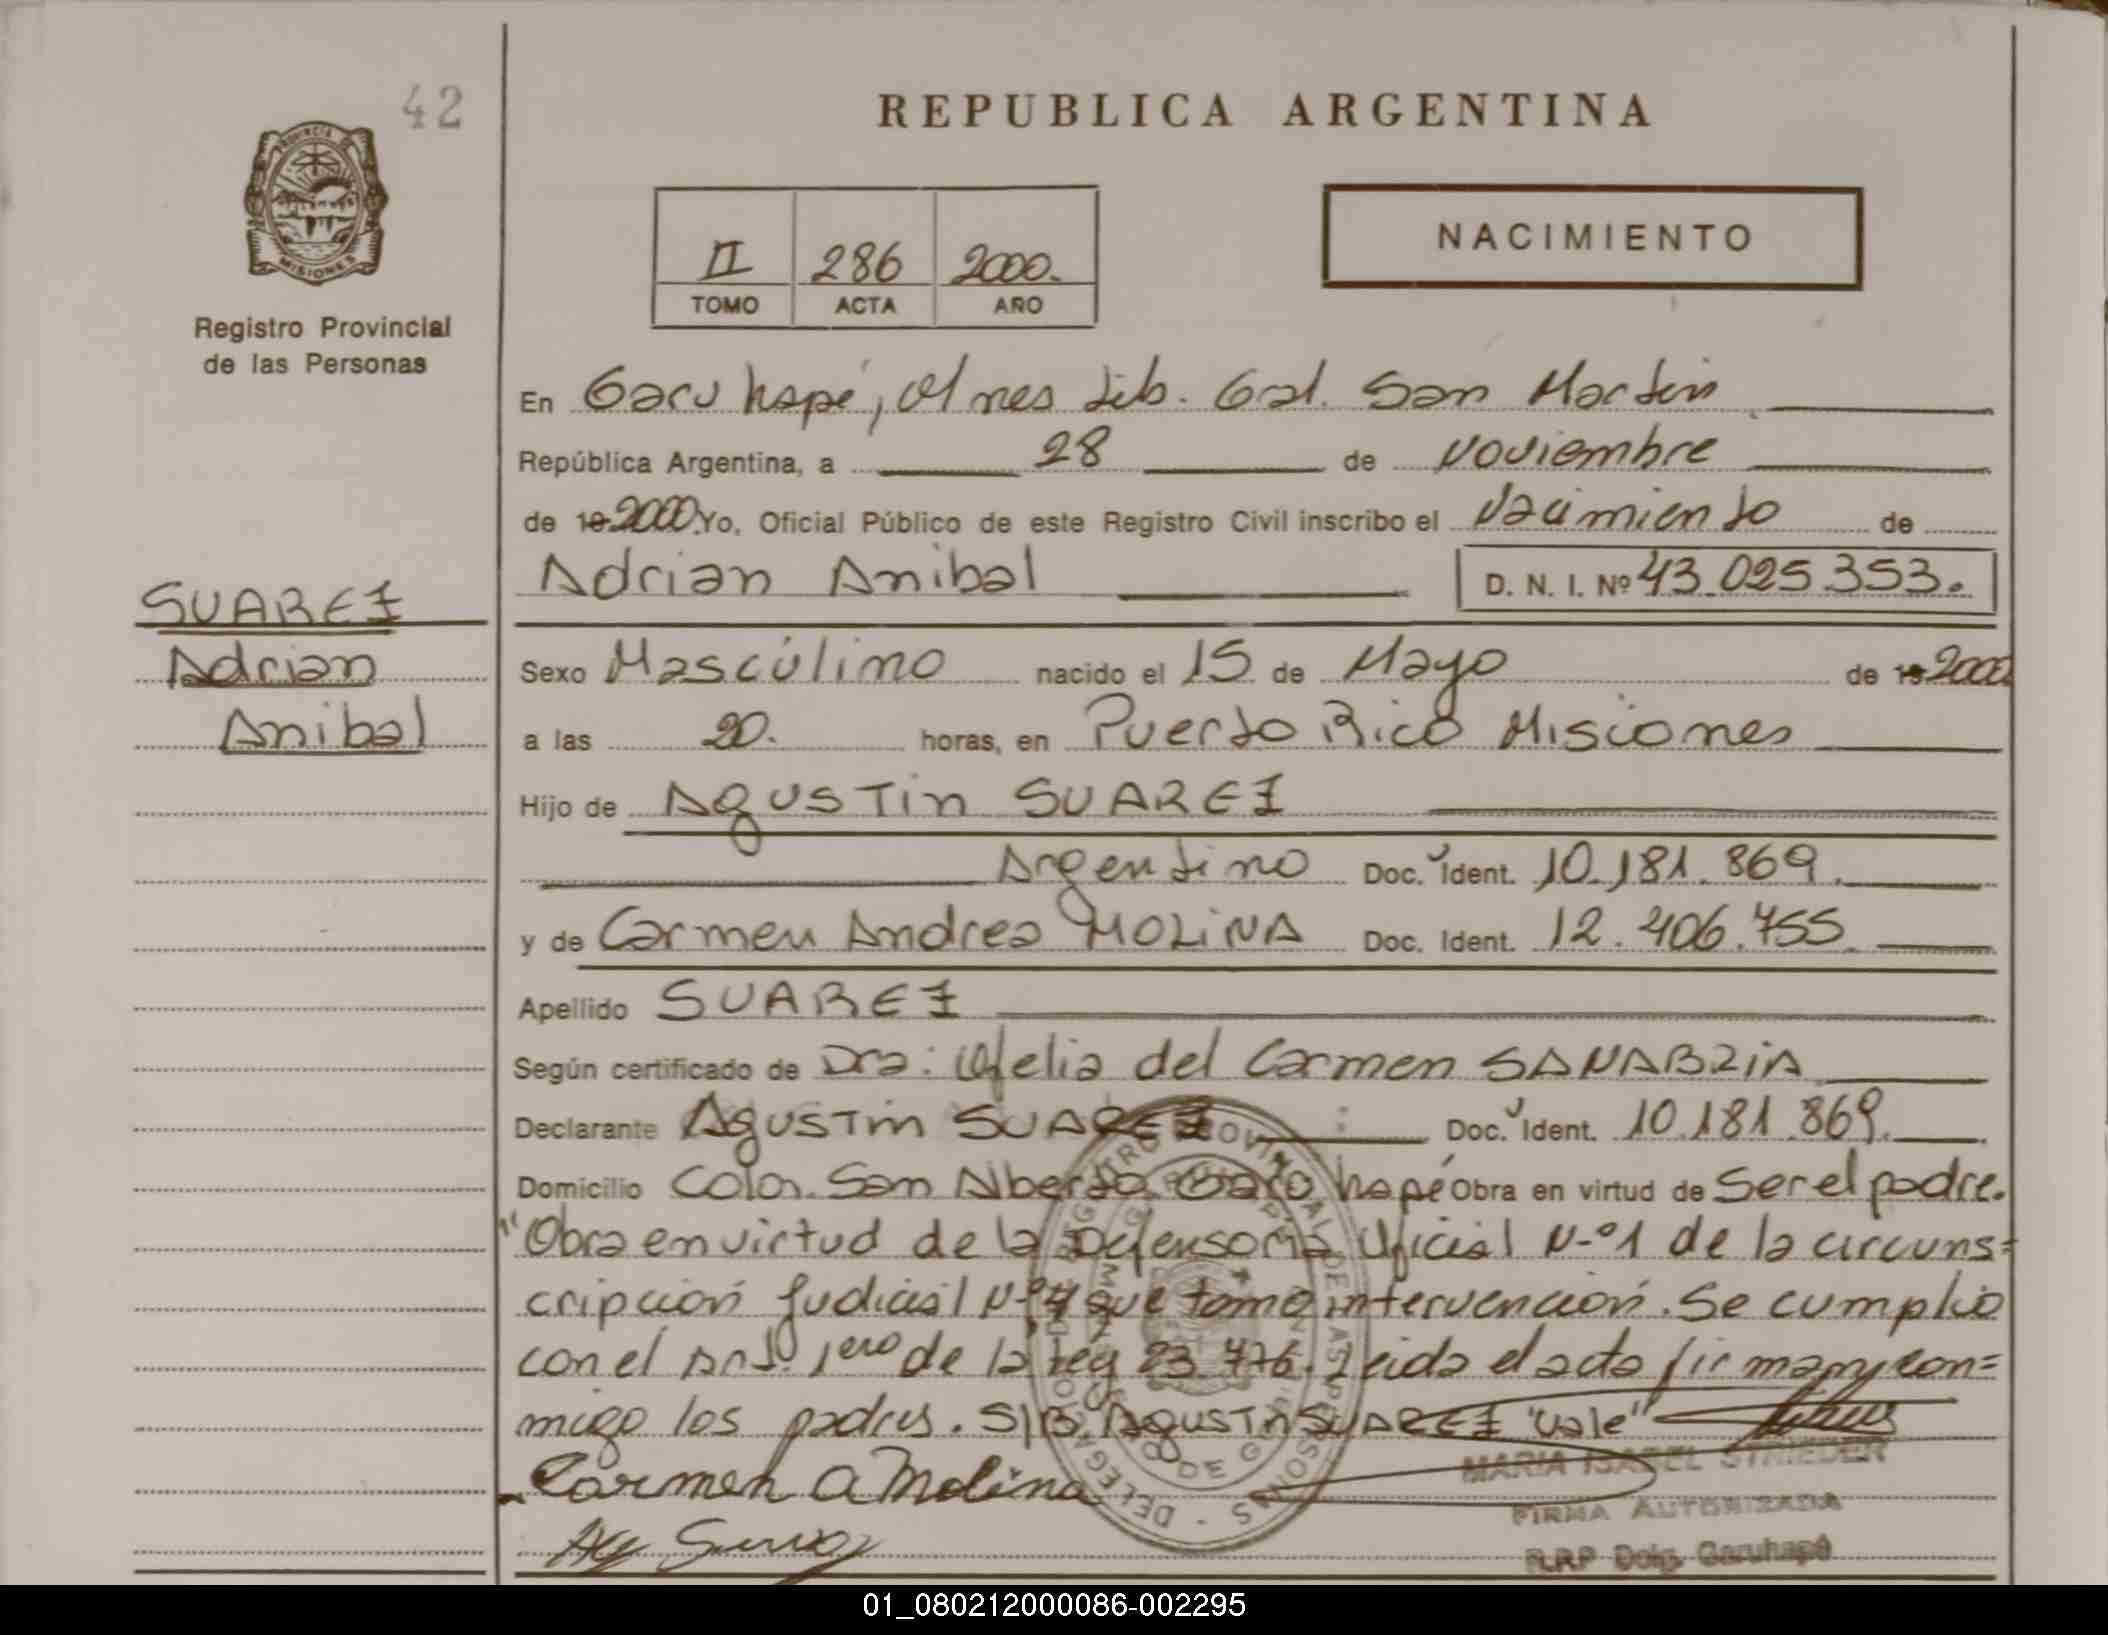 42
REPUBLICA ARGENTINA
PROVINCIA
MISIONES
Registro Provincial
de las Personas
II 286 2000.
TOMO ACTA AÑO
NACIMIENTO
En Garuhapé, Mnes Lib. Gral. San Martin
República Argentina, a 28 de Noviembre
de 19 2000. Yo, Oficial Público de este Registro Civil inscribo el Nacimiento de
Adrian Anibal D. N. I. Nº 43.025.353.
SUAREZ
Adrian
Anibal
Sexo Mascúlino nacido el 15 de Mayo de 19 2000
a las 20. horas, en Puerto Rico Misiones
Hijo de Agustin SUAREZ
Argentino Doc. Ident. 10.181.869.
y de Carmen Andrea MOLINA Doc. Ident. 12.406.755.
Apellido SUAREZ
Según certificado de Dra: Ofelia del Carmen SANABRIA
Declarante Agustin SUAREZ Doc. Ident. 10.181.869.
Domicilio Colon. San Alberto Garuhapé Obra en virtud de Ser el padre.
"Obra en virtud de la Defensoria Oficial N-º1 de la circuns=
cripción Judicial Nº4 que tomo intervención. Se cumplio
con el Art. 1ero de la Ley 23.776. Leida el acta firman con=
migo los padres. S/B Agustin SUAREZ "Vale"
Carmen A Molina
MARIA ISABEL STRIEDER
FIRMA AUTORIZADA
R.R.P Deleg. Garuhapé
01_080212000086-002295